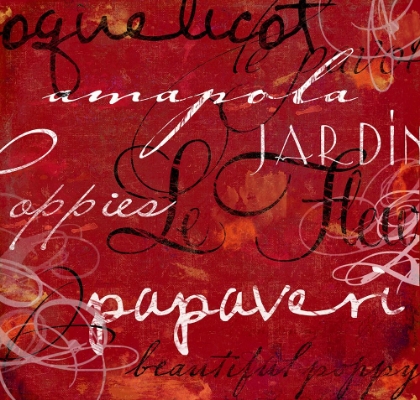 oquelicot
le pavot
amapola
JARDIN
Le Fleur
oppies
papaveri
beautiful poppy